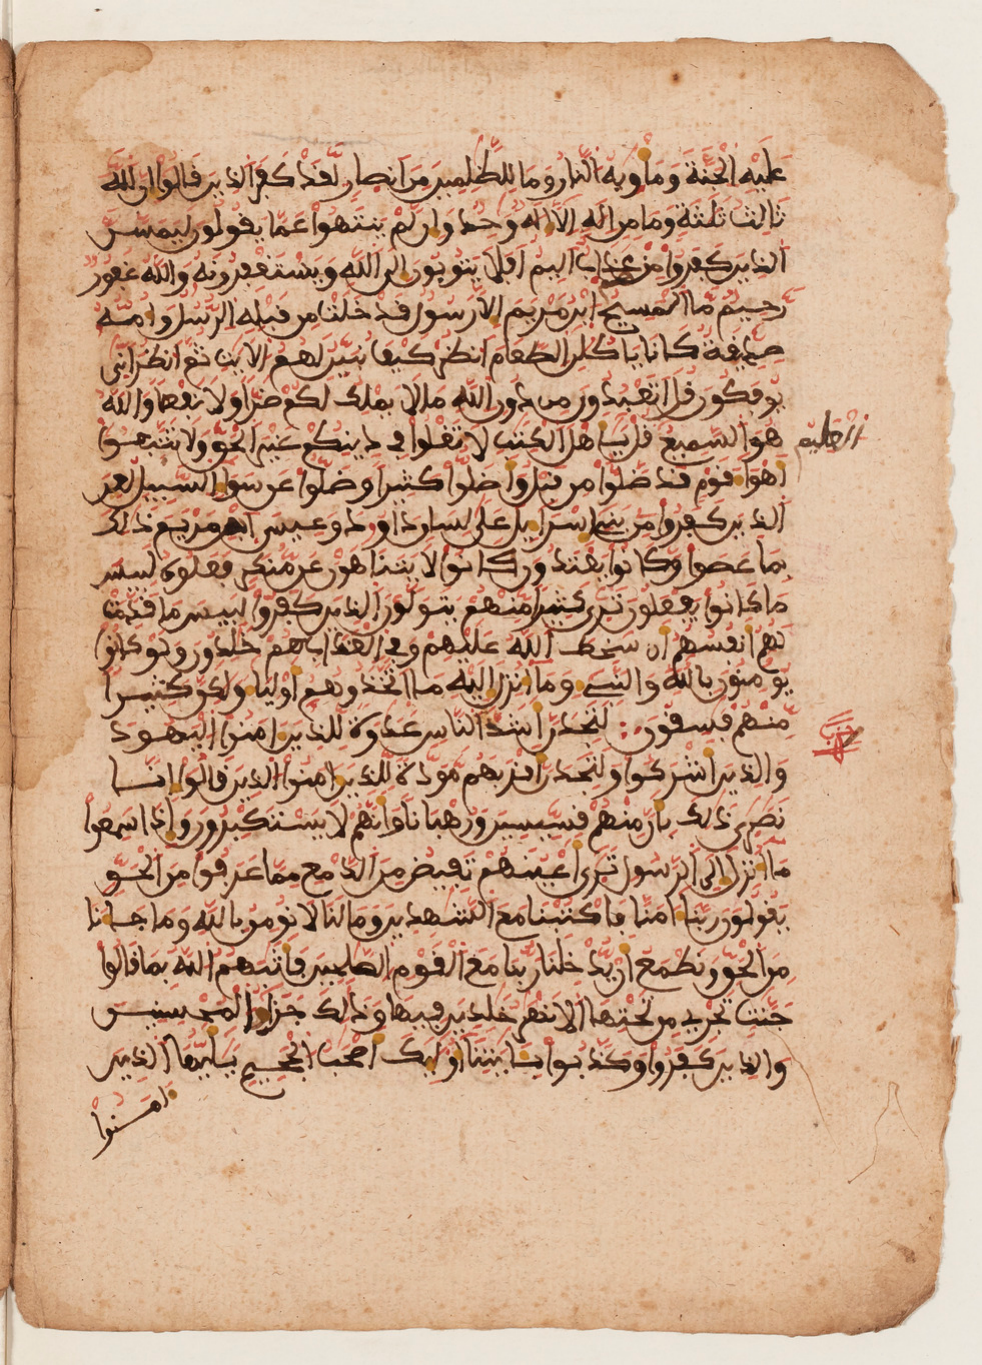 عليه الجنة ومأويه النار وما للظلمين من انصار لقد كفر الذين قالوا ان الله
ثالث ثلثة وما من اله الا اله وحد وان لم ينتهوا عما يقولون ليمسن
الذين كفروا منهم عذاب اليم افلا يتوبون الى الله ويستغفرونه والله غفور
رحيم ما المسيح ابن مريم الا رسول قد خلت من قبله الرسل وامه
صديقة كانا ياكلن الطعام انظر كيف نبين لهم الايت ثم انظر انى
يوفكون قل اتعبدون من دون الله ما لا يملك لكم ضرا ولا نفعا والله
هو السميع قل يا هل الكتب لا تغلوا في دينكم غير الحق ولا تتبعوا
العليم
اهوا قوم قد ضلوا من قبل واضلوا كثيرا وضلوا عن سوا السبيل لعن
الذين كفروا من بني اسرايل على لسان داود وعيسى ابن مريم ذلك
بما عصوا وكانوا يعتدون كانوا لا يتناهون عن منكر فعلوه لبيس
ما كانوا يفعلون ترى كثيرا منهم يتولون الذين كفروا لبيس ما قدمت
لهم انفسهم ان سخط الله عليهم وفي العذاب هم خلدون ولو كانوا
يومنون بالله والنبي وما انزل اليه ما اتخذوهم اوليا ولكن كثيرا
منهم فسقون لتجدن اشد الناس عدوة للذين امنوا اليهود
حزب
والذين اشركوا ولتجدن اقربهم مودة للذين امنوا الذين قالوا انا
نصرى ذلك بان منهم قسيسين ورهبانا وانهم لا يستكبرون واذا سمعوا
ما انزل الى الرسول ترى اعينهم تفيض من الدمع مما عرفوا من الحق
يقولون ربنا امنا فاكتبنا مع الشهدين وما لنا لا نومن بالله وما جانا
من الحق ونطمع ان يدخلنا ربنا مع القوم الصلحين فاثبهم الله بما قالوا
جنت تجري من تحتها الانهر خلدين فيها وذلك جزاوا المحسنين
والذين كفروا وكذبوا بايتنا اوليك اصحب الجحيم يايها الذين
امنوا